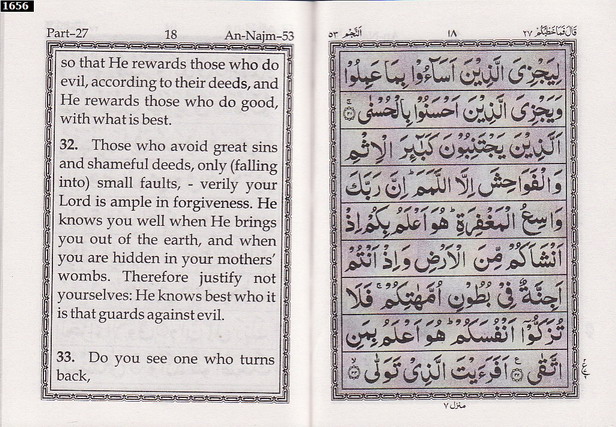 1656
Part–27 18 An-Najm–53
so that He rewards those who do
evil, according to their deeds, and
He rewards those who do good,
with what is best.
32. Those who avoid great sins
and shameful deeds, only (falling
into) small faults, - verily your
Lord is ample in forgiveness. He
knows you well when He brings
you out of the earth, and when
you are hidden in your mothers'
wombs. Therefore justify not
yourselves: He knows best who it
is that guards against evil.
33. Do you see one who turns
back,
قَالَ فَمَا خَطْبُكُمْ ٢٧ ١٨ اَلنَّجْم ٥٣
لِيَجْزِىَ الَّذِيْنَ اَسَآءُوْا بِمَا عَمِلُوْا
وَيَجْزِىَ الَّذِيْنَ اَحْسَنُوْا بِالْحُسْنٰى ۚ ٣١
اَلَّذِيْنَ يَجْتَنِبُوْنَ كَبٰٓئِرَ الْاِثْمِ
وَالْفَوَاحِشَ اِلَّا اللَّمَمَ ؕ اِنَّ رَبَّكَ
وَاسِعُ الْمَغْفِرَةِ ؕ هُوَ اَعْلَمُ بِكُمْ اِذْ
اَنْشَاَكُمْ مِّنَ الْاَرْضِ وَاِذْ اَنْتُمْ
اَجِنَّةٌ فِىْ بُطُوْنِ اُمَّهٰتِكُمْ ۚ فَلَا
تُزَكُّوْٓا اَنْفُسَكُمْ ؕ هُوَ اَعْلَمُ بِمَنِ
اتَّقٰى ٣٢ اَفَرَءَيْتَ الَّذِىْ تَوَلّٰى ۙ ٣٣
منزل ٧